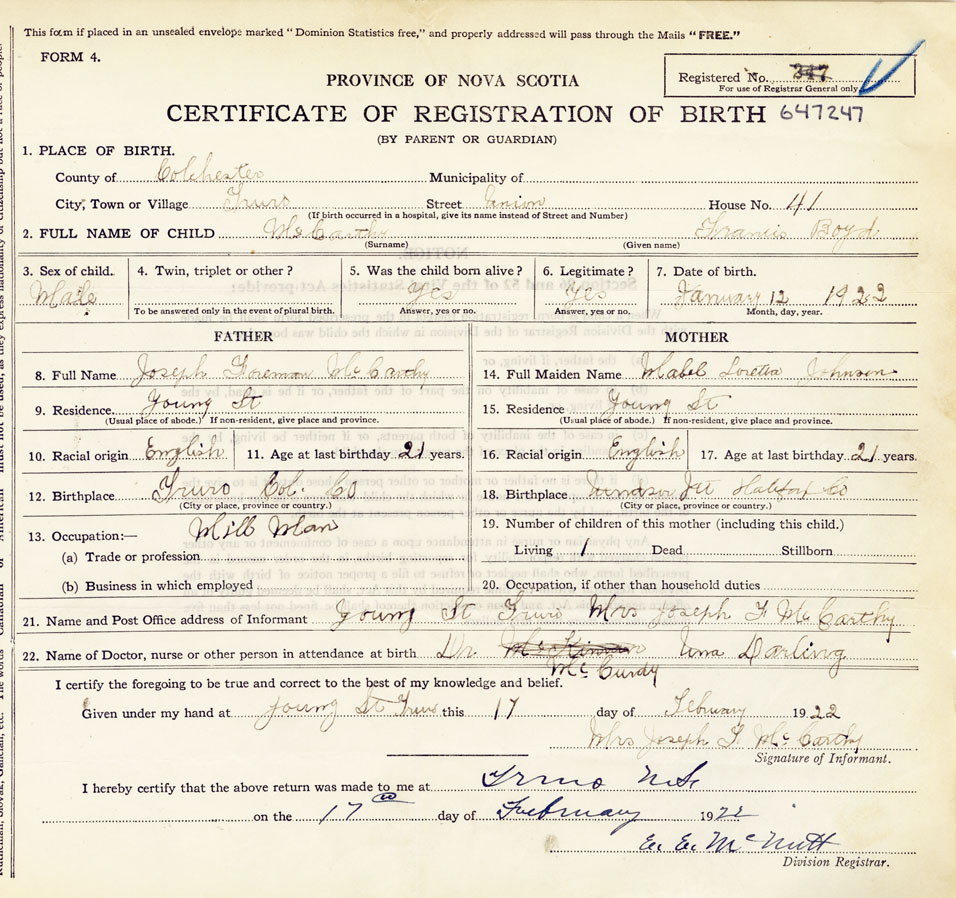 This form if placed in an unsealed envelope marked "Dominion Statistics free," and properly addressed will pass through the Mails "FREE."
FORM 4.
Registered No. 347
For use of Registrar General only
PROVINCE OF NOVA SCOTIA
CERTIFICATE OF REGISTRATION OF BIRTH 647247
(BY PARENT OR GUARDIAN)
1. PLACE OF BIRTH.
County of Colchester Municipality of
City, Town or Village Truro Street Union House No. 41
(If birth occurred in a hospital, give its name instead of Street and Number)
2. FULL NAME OF CHILD McCarthy Francis Boyd
(Surname) (Given name)
3. Sex of child. 4. Twin, triplet or other? 5. Was the child born alive? 6. Legitimate? 7. Date of birth.
Male Yes Yes January 12 1922
To be answered only in the event of plural birth. Answer, yes or no. Answer, yes or no. Month, day, year.
FATHER MOTHER
8. Full Name Joseph Foreman McCarthy 14. Full Maiden Name Mabel Loretta Johnson
9. Residence. Young St 15. Residence Young St
(Usual place of abode.) If non-resident, give place and province. (Usual place of abode.) If non-resident, give place and province.
10. Racial origin English 11. Age at last birthday 21 years. 16. Racial origin English 17. Age at last birthday 21 years.
12. Birthplace Truro Col. Co 18. Birthplace Windsor Jct Halifax Co
(City or place, province or country.) (City or place, province or country.)
13. Occupation:— Mill Man 19. Number of children of this mother (including this child.)
(a) Trade or profession Living 1 Dead Stillborn
(b) Business in which employed 20. Occupation, if other than household duties
21. Name and Post Office address of Informant Young St Truro Mrs Joseph F McCarthy
22. Name of Doctor, nurse or other person in attendance at birth Dr. McKinnon Una Darling
McCurdy
I certify the foregoing to be true and correct to the best of my knowledge and belief.
Given under my hand at Young St Truro this 17 day of February 1922
Mrs Joseph F McCarthy
Signature of Informant.
I hereby certify that the above return was made to me at Truro N.S.
on the 17th day of February 1922
E. E. McNutt
Division Registrar.